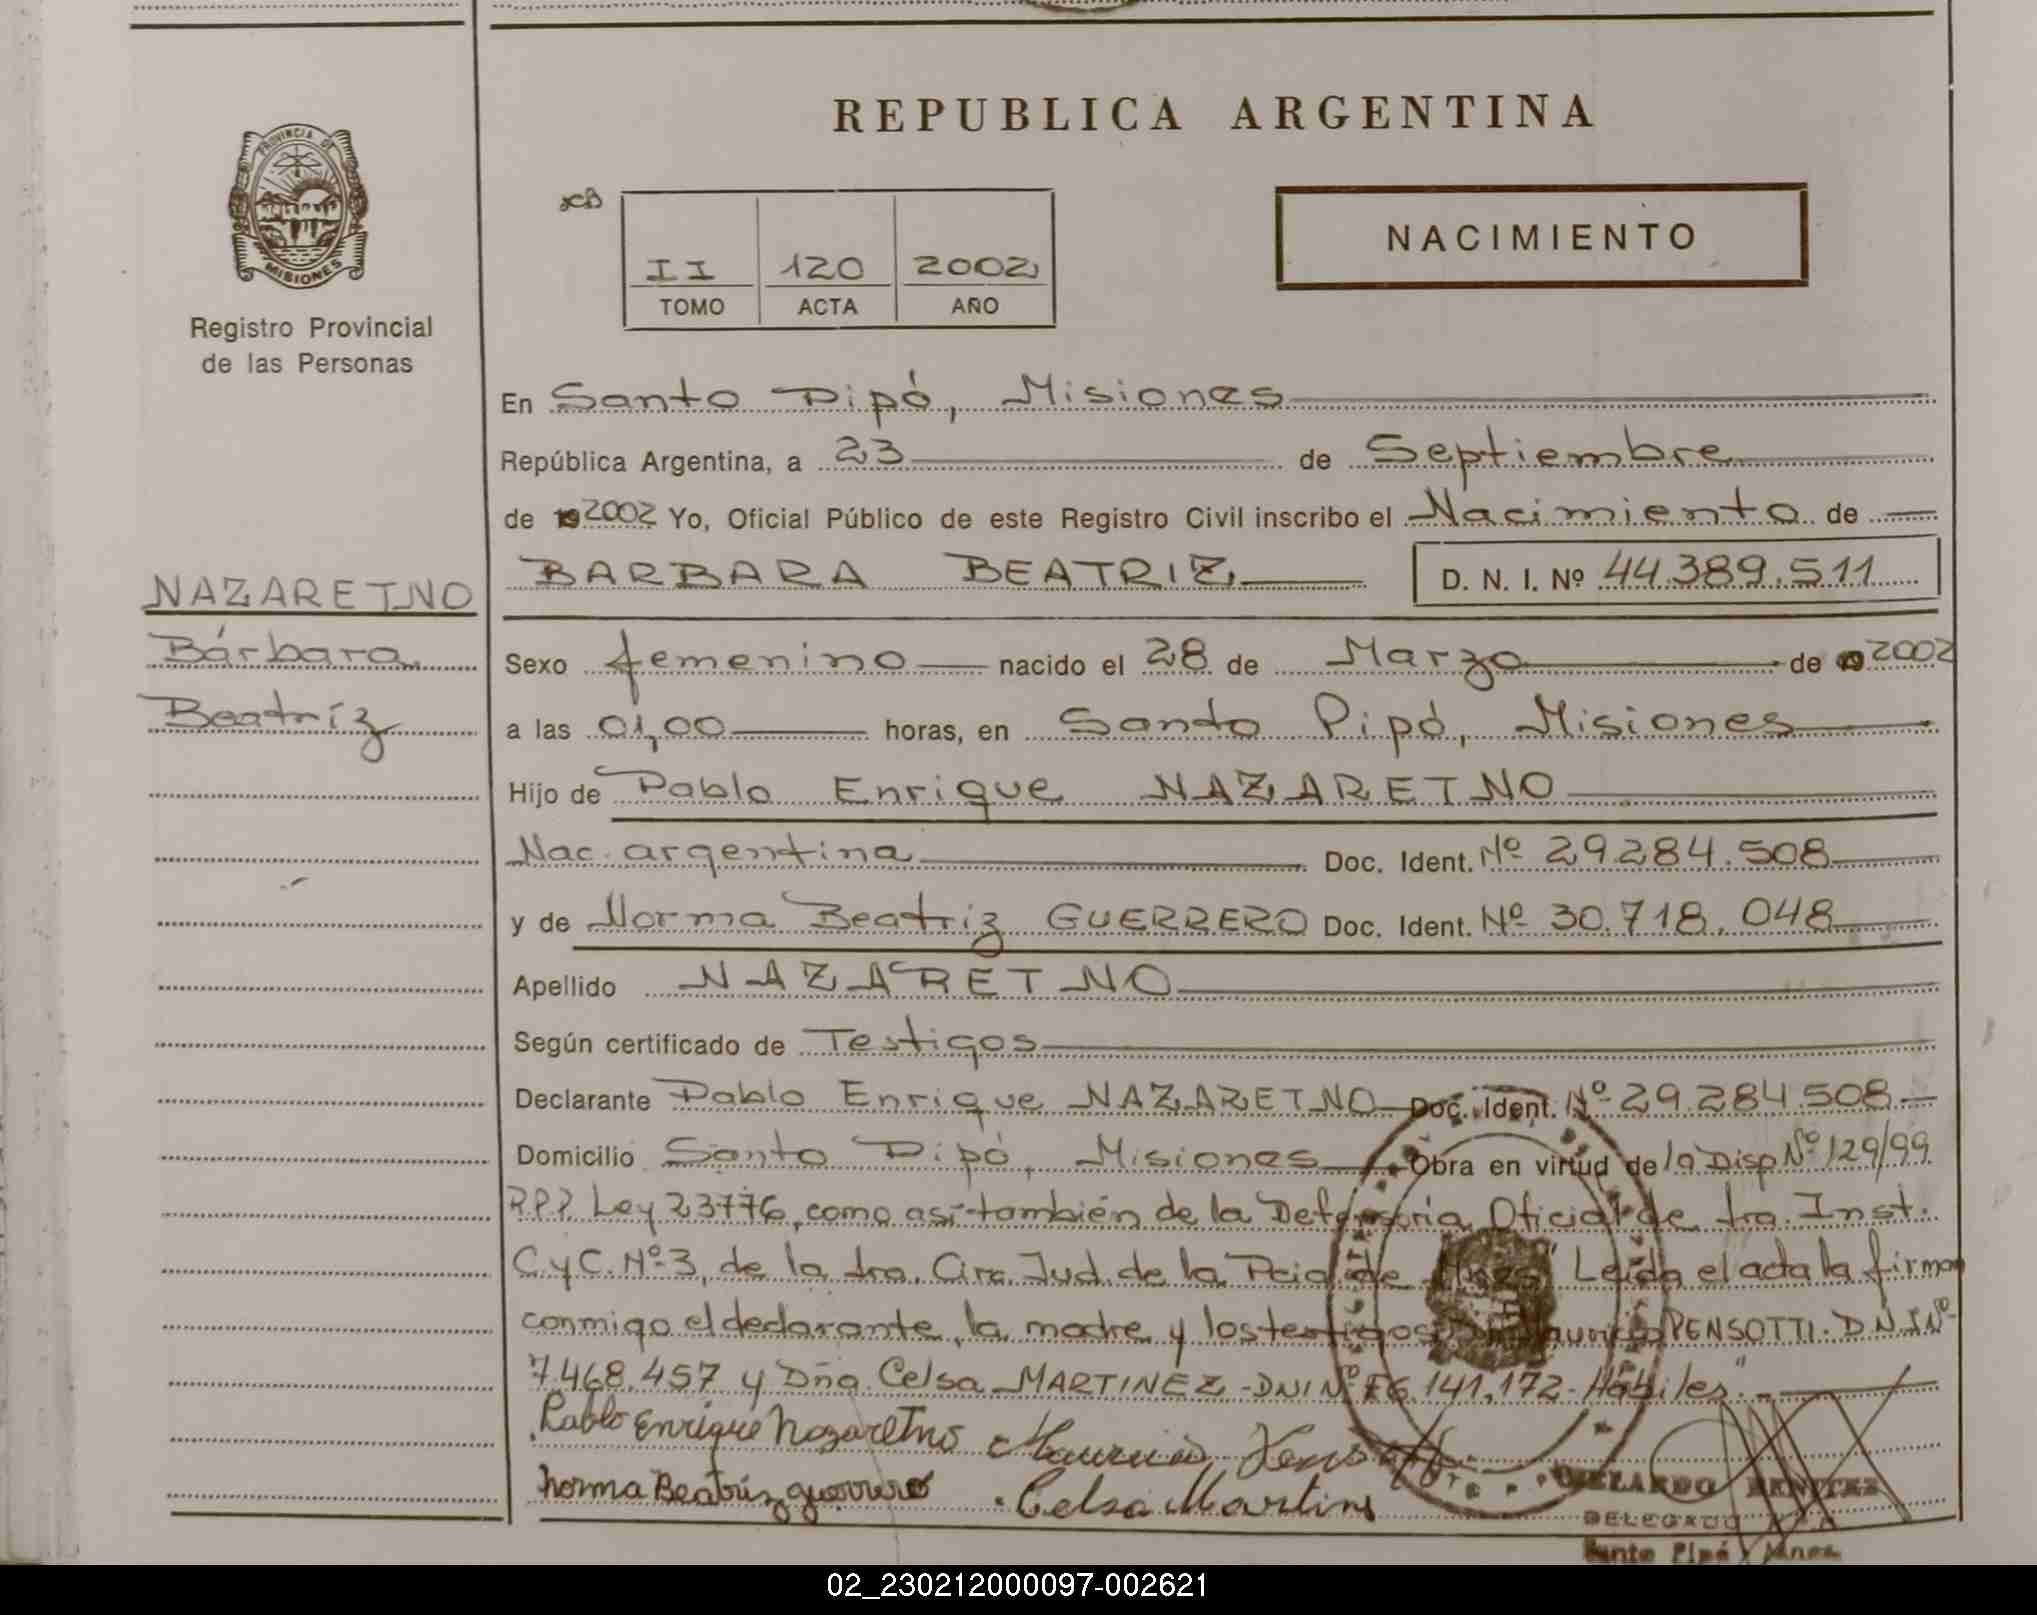 REPUBLICA ARGENTINA
PROVINCIA DE
MISIONES
Registro Provincial
de las Personas
II 120 2002
TOMO ACTA AÑO
NACIMIENTO
En Santo Pipó, Misiones
República Argentina, a 23 de Septiembre
de 19 2002 Yo, Oficial Público de este Registro Civil inscribo el Nacimiento de
BARBARA BEATRIZ D. N. I. Nº 44.389.511
NAZARETNO
Bárbara
Beatríz
Sexo femenino nacido el 28 de Marzo de 19 2002
a las 01,00 horas, en Santo Pipó, Misiones
Hijo de Pablo Enrique NAZARETNO
Nac. argentina Doc. Ident. Nº 29.284.508
y de Norma Beatriz GUERRERO Doc. Ident. Nº 30.718.048
Apellido NAZARETNO
Según certificado de Testigos
Declarante Pablo Enrique NAZARETNO Doc. Ident. Nº 29.284.508
Domicilio Santo Pipó, Misiones Obra en virtud de la Disp Nº 129/99
R.P.P. Ley 23776, como asi-también de la Defensoria Oficial de 1ra. Inst.
C.yC. Nº 3, de la 1ra. Circ. Jud. de la Pcia. de Mnes" Leída el acta la firman
conmigo el declarante, la madre y los testigos Mauricio PENSOTTI. D.N.I Nº
7.468.457 y Dña. Celsa MARTINEZ - DNI Nº F6.141.172 - Hábiles".-
Pablo Enrique Nazaretno Mauricio Pensotti
Norma Beatríz guerrero Celsa Martinez
BENITEZ
DELEGADO
Santo Pipó Mnes.
02_230212000097-002621